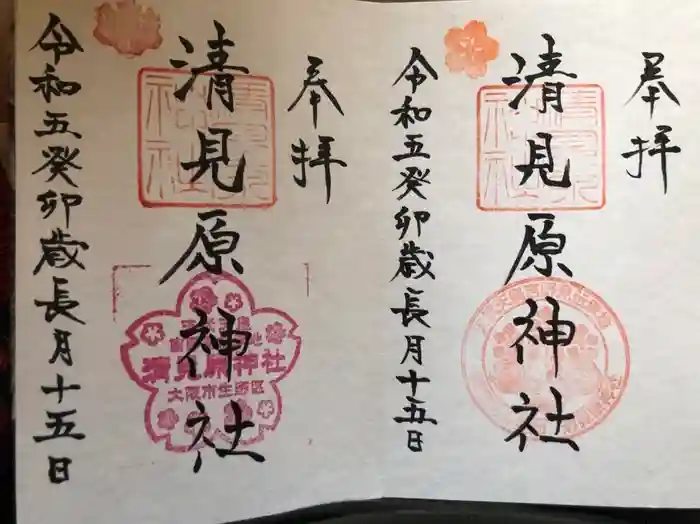 奉拝
清見原神社
令和五癸卯歳長月十五日
奉拝
清見原神社
令和五癸卯歳長月十五日
清見原神社
大阪市生野区